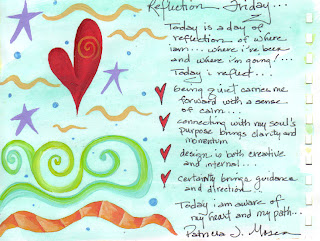 Reflection Friday...
Today is a day of
reflection of where
i am... where i've been
and where i'm going!...
Today i reflect...
being quiet carries me
forward with a sense
of calm...
connecting with my soul's
purpose brings clarity and
momentum
design is both creative
and internal...
certainty brings guidance
and direction...
Today i am aware of
my heart and my path...
Patricia J. Mosca